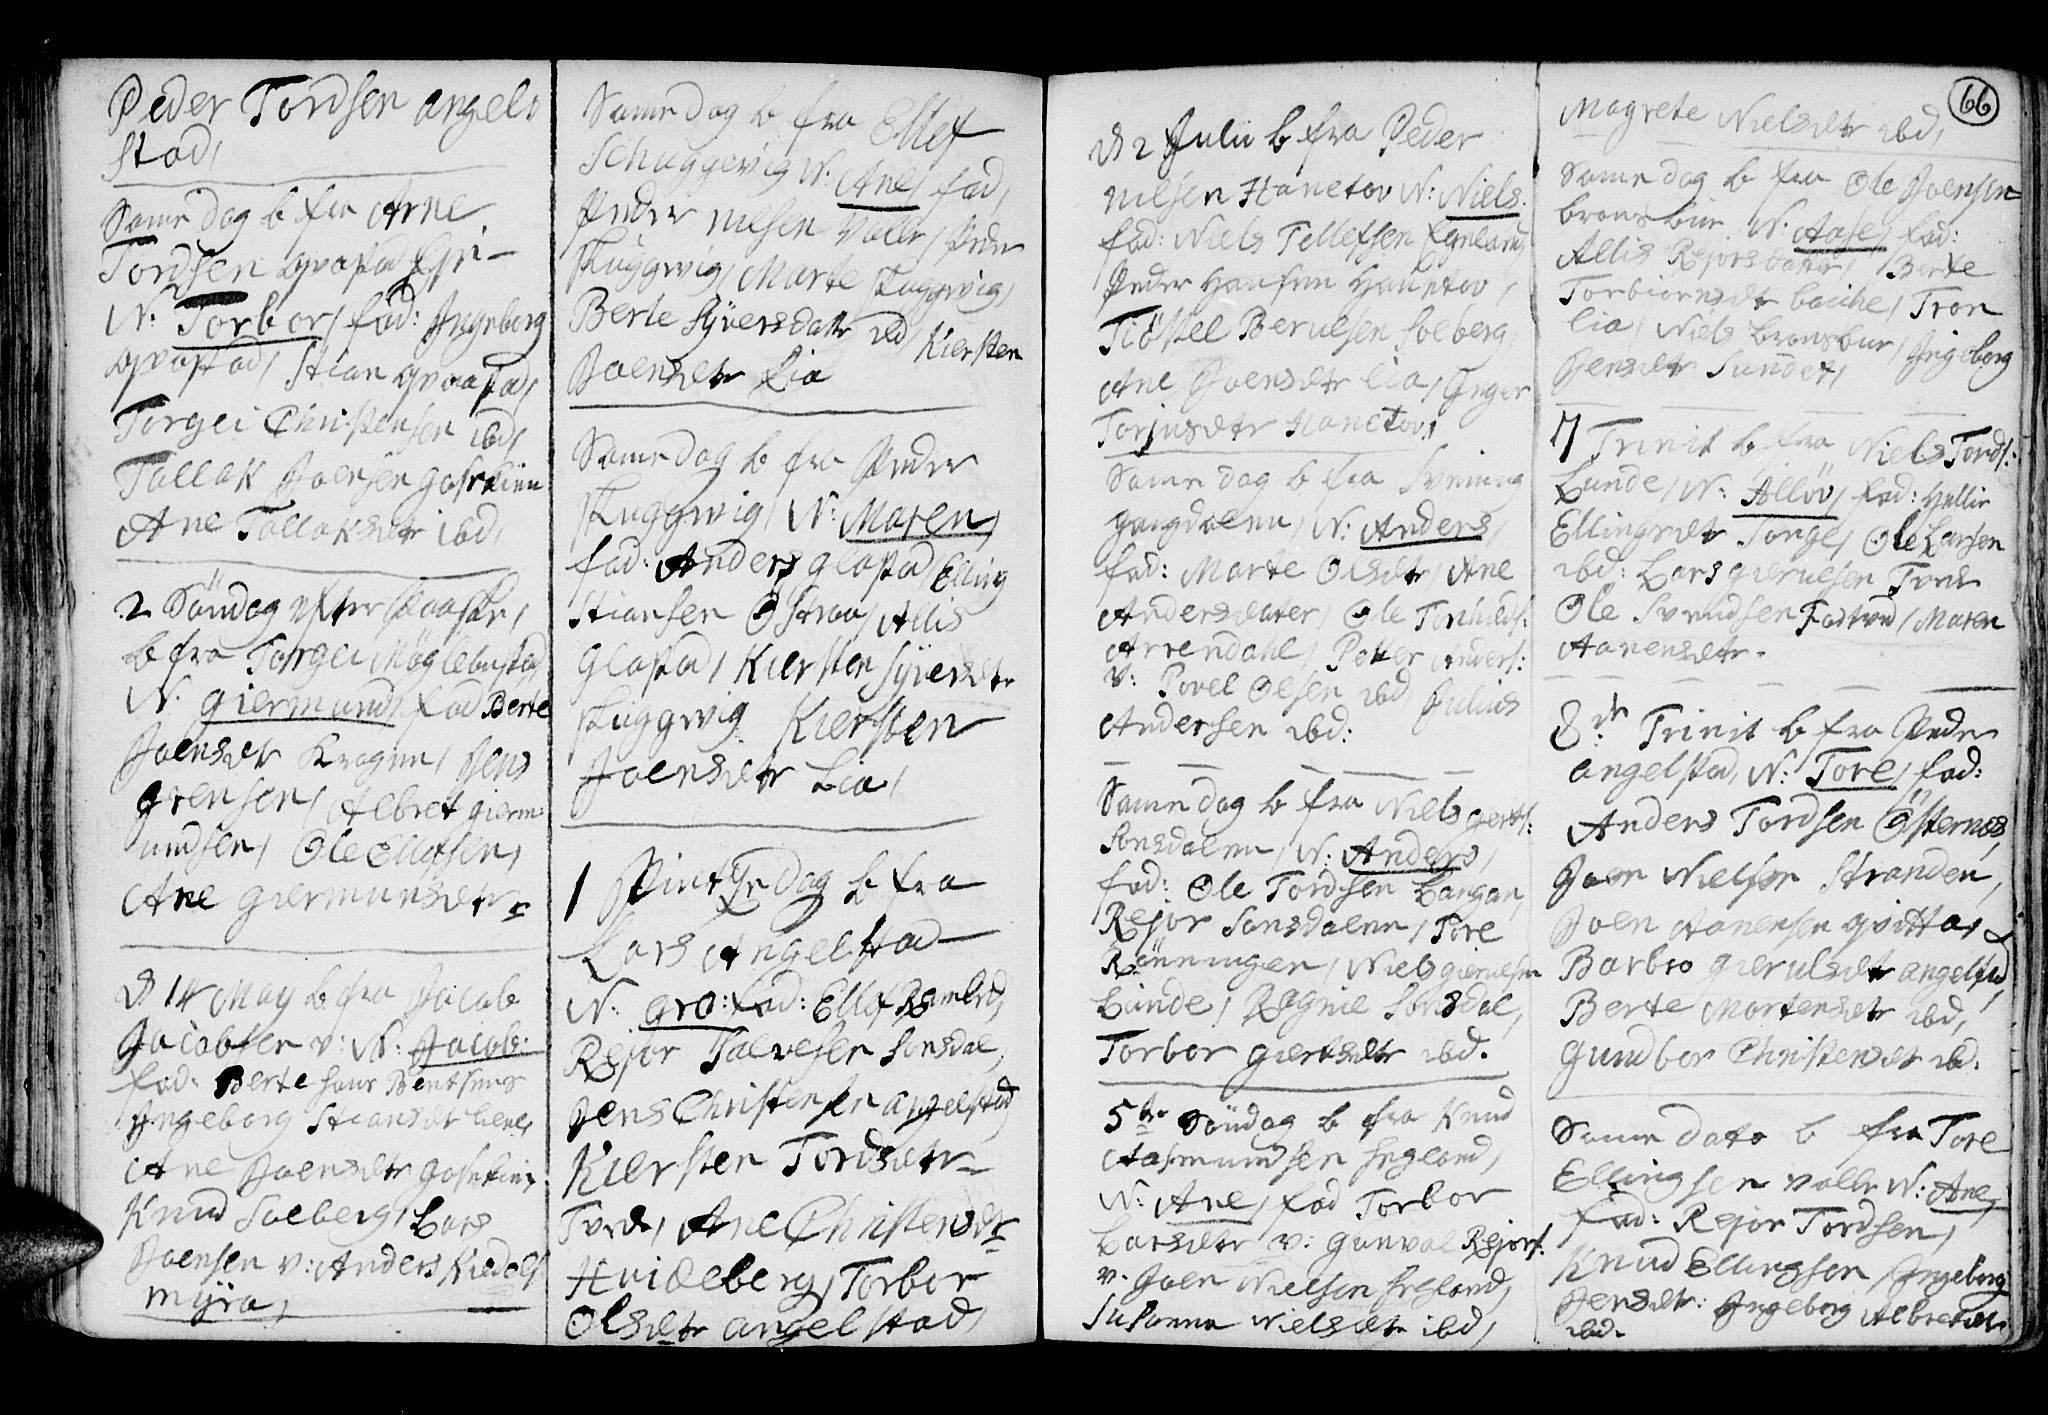 Peder Tordsen angel-
stad,
Same dag b fra Arne
Tordsen qvastad Gri-
N: Torbor, fad: Ingeborg
qvastad, Stian qvaastad,
Torgei Christensen ibd,
Tallak Joensen
Ane Tallaksdtr ibd,
2 Söndag efter Paaske,
b fra Torgei Möglebustad,
N. giermund, fad Berte
Joensdtr Kragen, Jens
grensen, Albret gierm:
undsen, Ole Ellefsen,
Ane giermunsdtr
d 14 May b fra Jacob
Jacobsen v: N: Jacob:
fad: Berte Hans Bentsens
Ingeborg Stiansdtr
Ane Joensdtr
Knud Solberg, Lars
Joensen v: Anders
myra,
Same dag b fra Ellef
Schuggevig N: Ane, fad,
Peder nilsen Valle, Peder
skuggvig, Marte skuggvig,
Berte Syversdatr ibd, Kiersten
Joensdtr Lia
Same dag b fra Peder
skuggwig, N: Maren,
fad: Anders glastad, Elling
Stiansen Östraa, Allis
Glastad, Kiersten Syversdtr
skuggwig. Kiersten
Joensdtr Lia,
1 Pintze dag b fra
Lars Angelstad
N: gro: fad: Ellef
Rejor Talvesen Sonsdal,
Jens Christensen angelstad
Kiersten Tordsdtr
Tvede, Ane Christensdtr
Hvideberg, Torbor
Olsdtr angelstad,
d 2 Julii b fra Peder
nilsen Hanetov N: Niels.
fad: Niels Tellefsen Egeland,
Peder Hansen Hanetov,
Tiöstel Berulsen Solberg,
Ane Joensdtr lia, Inger
Torjusdtr Hanetov,
Same dag b fra Svening
gangdalen, N: Anders,
fad: Marte Olsdtr, Ane
Andersdatter, Ole
Arrendahl, Petter Anders:
v: Povel Olsen ibd, Julius
Andersen ibd:
Same dag b fra Niels gierts:
Sonsdalen, N: Anders,
fad: Ole Tordsen Langan,
Rejor Sonsdalen, Tore
Rönningen, Niels gierulsen
Lunde, Ragnil Sonsdal,
Torbor giertsdtr ibd.
5te Söndag b fra Knud
Aasmundsen Egeland,
N: Ane, fad Torbor
Larsdtr v: gunval Rejors:
v. Joen Nielsen Egeland,
Susanna Nielsdtr ibd,
66
Magrete Nielsdtr ibd,
Same dag b fra Ole Joensen
bronsbue N: Aase, fad:
Allis Rejorsdatter, Berte
Torbiörnsdtr bache, Tron
lia, Niels bronsbue, Ingeborg
Jensdtr Sundet,
7 Trinit b fra Niels Tords:
Lunde, N: Allöv, fad: Hellie
Ellingsdtr Songe, Ole Larsen
ibd: Lars gierulsen Tvede
Ole Svendsen, Maren
Aanensdtr.
8de Trinit b fra Peder
angelstad, N: Tore, fad:
Anders Tordsen Östernæs,
Joen Nielsen Stranden,
Joen Aanensen qvitta,
Barbro gierulsdtr angelstad,
Berte Mortensdtr ibd,
Gundbor Christensdt ibd.
Same dato b fra Tore
Ellingsen Valle N: Ane,
fad: Rejor Tordsen,
Knud Ellingsen, Ingeborg
Jensdtr: Ingeborg Albretsdtr
ibd.